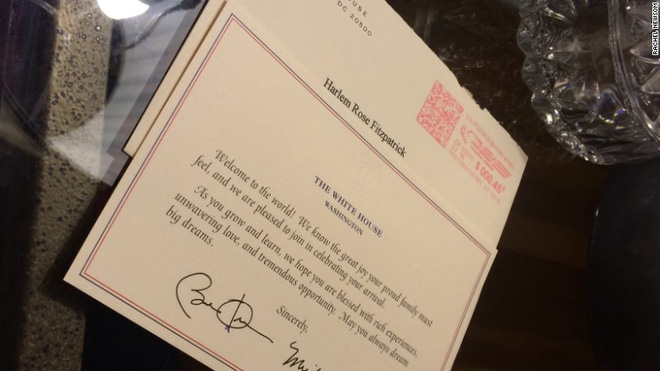 USE
DC 20500
Harlem Rose Fitzpatrick
$ 000.46
THE WHITE HOUSE
WASHINGTON
Welcome to the world! We know the great joy your proud family must
feel, and we are pleased to join in celebrating your arrival.
As you grow and learn, we hope you are blessed with rich experiences,
unwavering love, and tremendous opportunity. May you always dream
big dreams.
Sincerely,
RACHEL NEWSOM